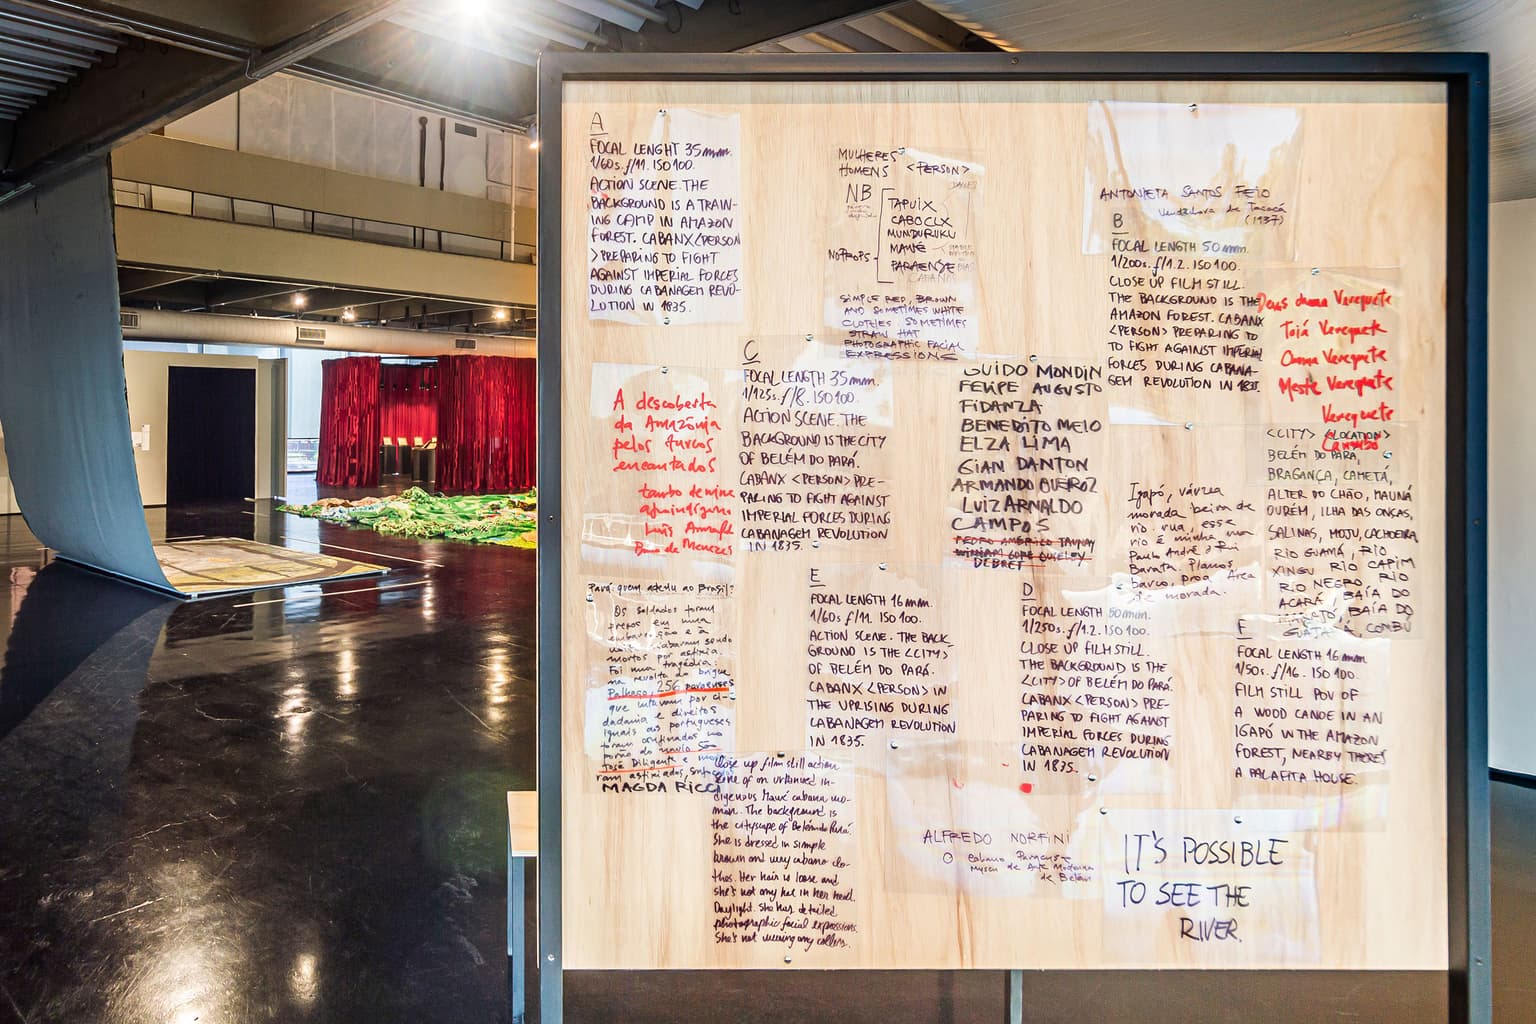 A
FOCAL LENGHT 35mm.
1/60s. f/11. ISO 100.
ACTION SCENE. THE
BACKGROUND IS A TRAIN-
ING CAMP IN AMAZON
FOREST. CABANX <PERSON
> PREPARING TO FIGHT
AGAINST IMPERIAL FORCES
DURING CABANAGEM REVO-
LUTION IN 1835.
MULHERES
HOMENS <PERSON>
NB
TAPUIX
CABOCLX
MUNDURUKU
MAWÉ
PARAENSE
NOTROPS
SIMPLE RED, BROWN
AND SOMETIMES WHITE
CLOTHES. SOMETIMES
STRAW HAT
PHOTOGRAPHIC FACIAL
EXPRESSIONS
ANTONIETA SANTOS FEIO
Vendedora de Tacacá
(1937)
B
FOCAL LENGTH 50mm.
1/200s. f/1.2. ISO 100.
CLOSE UP FILM STILL.
THE BACKGROUND IS THE
AMAZON FOREST. CABANX
<PERSON> PREPARING TO
TO FIGHT AGAINST IMPERIAL
FORCES DURING CABANA-
GEM REVOLUTION IN 1835.
Verequete
Toiá Verequete
Verequete
Verequete
Verequete
C
FOCAL LENGTH 35mm.
1/125s. f/8. ISO 100.
ACTION SCENE. THE
BACKGROUND IS THE CITY
OF BELÉM DO PARÁ.
CABANX <PERSON> PRE-
PARING TO FIGHT AGAINST
IMPERIAL FORCES DURING
CABANAGEM REVOLUTION
IN 1835.
A descoberta
da Amazônia
pelos turcos
encantados
GUIDO MONDIN
FELIPE AUGUSTO
FIDANZA
BENEDITO MELO
ELZA LIMA
GIAN DANTON
ARMANDO QUEIROZ
LUIZ ARNALDO
CAMPOS
PEDRO AMÉRICO TAUNAY
WILLIAM GORE OUSELEY
DEBRET
<CITY> <LOCATION>
BELÉM DO PARÁ,
BRAGANÇA, CAMETÁ,
ALTER DO CHÃO,
OURÉM, ILHA DAS ONÇAS,
SALINAS, MOJU, CACHOEIRA,
RIO GUAMÁ, RIO
XINGU RIO CAPIM
RIO NEGRO, RIO
ACARÁ, BAÍA DO
BAÍA DO
Igapó, várzea
morada beira de
rio. rua, esse
rio é minha rua
Paulo André e Rui
Barata.
barco, proa. Área
morada.
Pará: quem adediu ao Brasil?
Os soldados foram
presos em uma
embarcação e à
acabaram sendo
mortos por asfixia.
Foi uma tragédia.
na revolta do brigue
Palhaço, 256 paraenses
que lutavam por ci-
dadania e direitos
iguais aos portugueses
foram confinados no
porão do navio São
José Diligente e mor-
ram asfixiados,
MAGDA RICCI
E
FOCAL LENGTH 16mm.
1/60s f/11. ISO 100.
ACTION SCENE. THE BACK
GROUND IS THE <CITY>
OF BELÉM DO PARÁ.
CABANX <PERSON> IN
THE UPRISING DURING
CABANAGEM REVOLUTION
IN 1835.
D
FOCAL LENGTH 50mm.
1/250s. f/1.2. ISO 100.
CLOSE UP FILM STILL.
THE BACKGROUND IS THE
<CITY> OF BELÉM DO PARÁ.
CABANX <PERSON> PRE-
PARING TO FIGHT AGAINST
IMPERIAL FORCES DURING
CABANAGEM REVOLUTION
IN 1835.
F
FOCAL LENGTH 16mm
1/50s. f/16. ISO 100.
FILM STILL POV OF
A WOOD CANOE IN AN
IGAPÓ IN THE AMAZON
FOREST, NEARBY THERE'S
A PALAFITA HOUSE.
Close up film still action
of an unknown in-
digenous Mawé cabana wo-
man. The background is
the cityscape of Belém do Pará.
She is dressed in simple
brown and cabano clo-
thes. Her hair is loose and
she's not any hat in her head.
Daylight. She has detailed
photographic facial expressions.
She's not wearing any collars.
ALFREDO NORFINI
O Cabano Paraense
Museu de Arte Moderna
de Belém
IT'S POSSIBLE
TO SEE THE
RIVER.